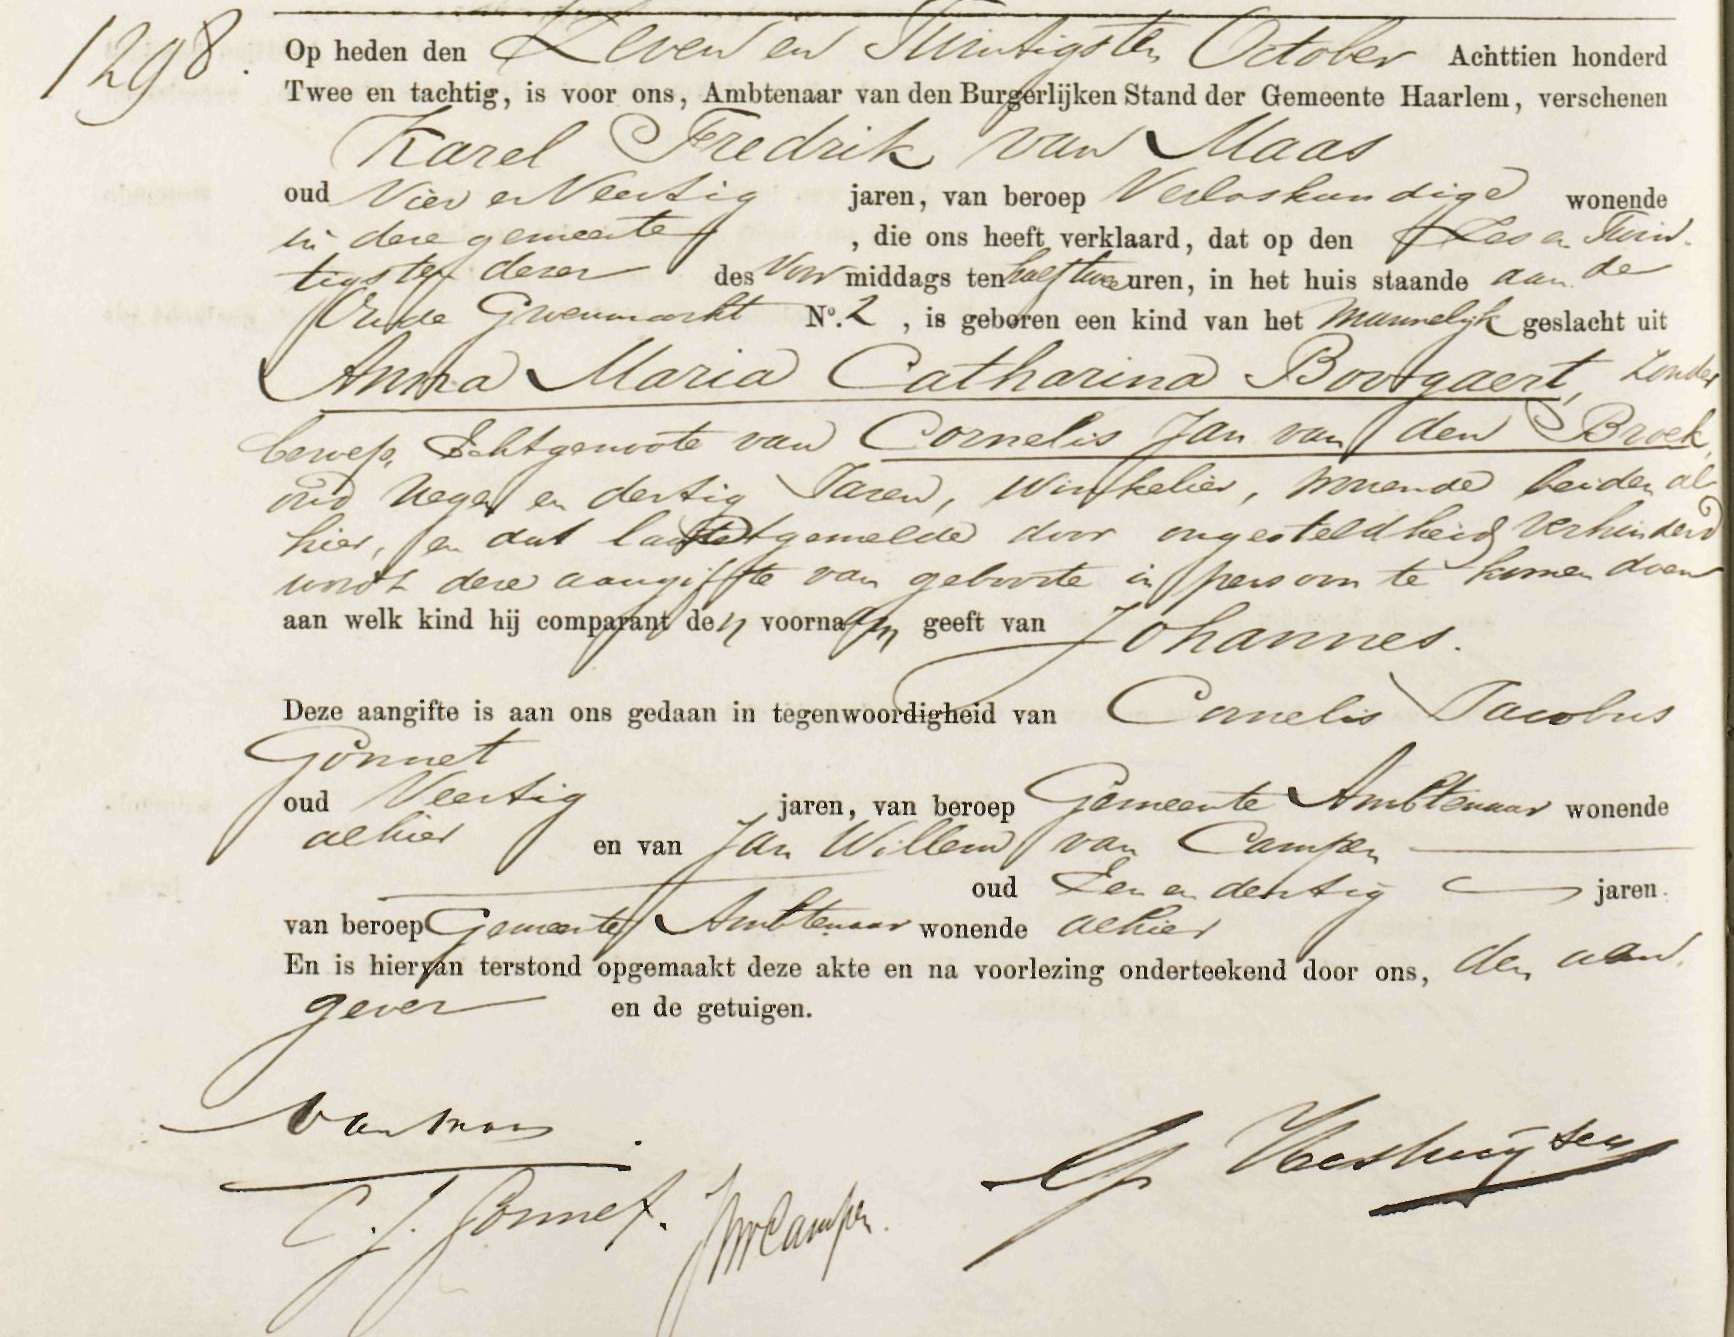 1298.
Op heden den Zeven en Twintigsten October Achttien honderd
Twee en tachtig, is voor ons, Ambtenaar van den Burgerlijken Stand der Gemeente Haarlem, verschenen
Karel Fredrik van Maas
oud Vier en Veertig jaren, van beroep Verloskundige wonende
in deze gemeente , die ons heeft verklaard, dat op den Zes en Twin-
tigsten dezer des Voor middags ten half twee uren, in het huis staande aan de
Oude Groenmarkt No. 2 , is geboren een kind van het Mannelijk geslacht uit
Anna Maria Catharina Boogaert, zonder
beroep, Echtgenoote van Cornelis Jan van den Broek,
oud Negen en dertig Jaren, Winkelier, wonende beiden al-
hier, en dat laatstgemelde door ongesteldheid verhinderd
wordt deze aangifte van geboorte in persoon te komen doen
aan welk kind hij comparant den voornaam geeft van Johannes.
Deze aangifte is aan ons gedaan in tegenwoordigheid van Cornelis Jacobus
Gonnet
oud Veertig jaren, van beroep Gemeente Ambtenaar wonende
alhier en van Jan Willem van Campen
oud Een en dertig jaren.
van beroep Gemeente Ambtenaar wonende alhier
En is hiervan terstond opgemaakt deze akte en na voorlezing onderteekend door ons, den aan-
gever en de getuigen.
van Maas
C. J. Gonnet. JWvCampen.